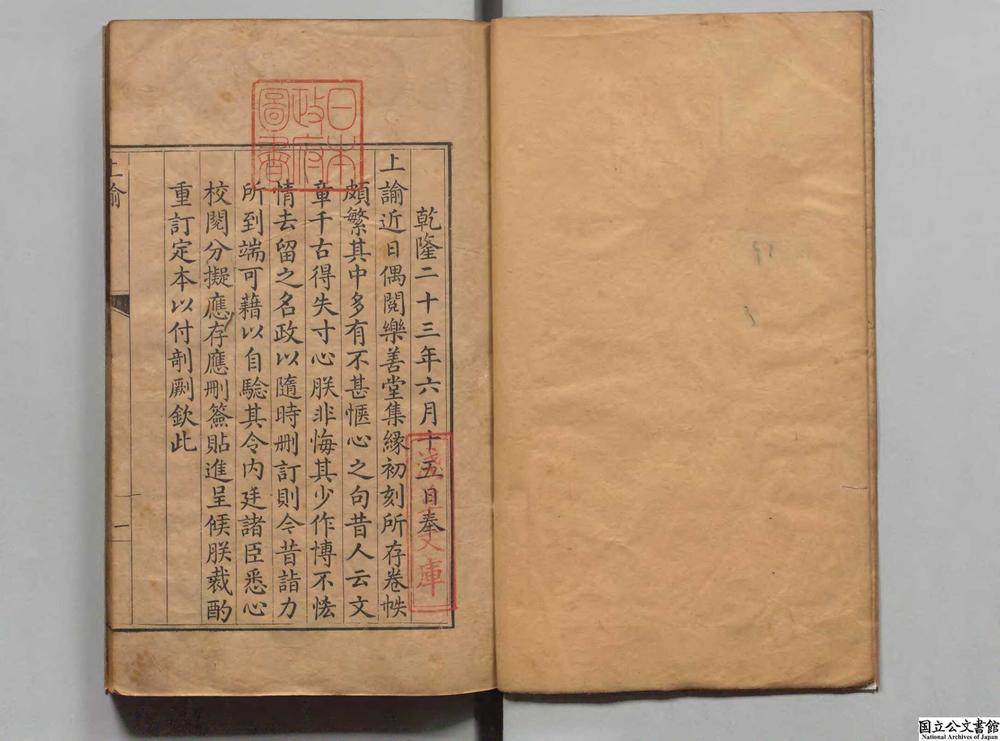 乾隆二十三年六月十五日奉
上諭近日偶閱樂善堂集緣初刻所存卷帙
頗繁其中多有不甚愜心之句昔人云文
章千古得失寸心朕非悔其少作博不恡
情去留之名政以隨時刪訂則今昔詣力
所到端可藉以自驗其令內廷諸臣悉心
校閱分擬應存應刪簽貼進呈候朕裁酌
重訂定本以付剞劂欽此
上諭
一
日本
政府
圖書
淺
文庫
国立公文書館
National Archives of Japan